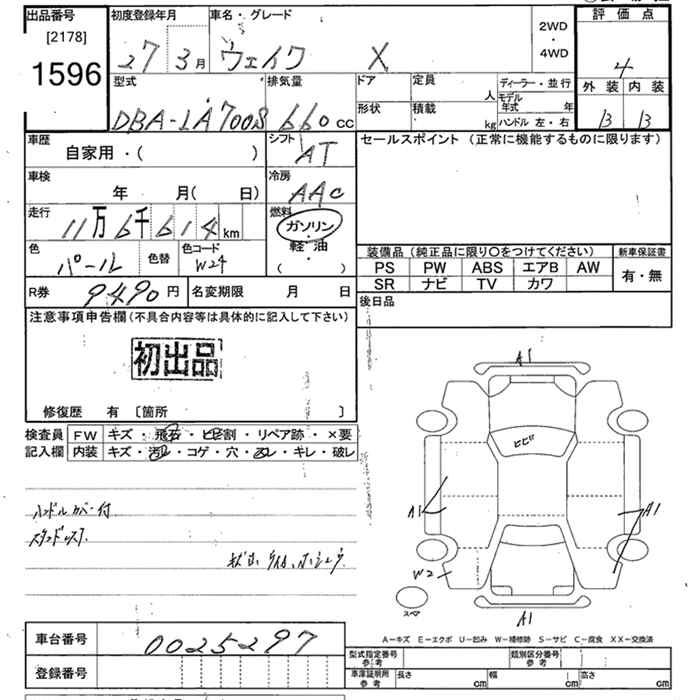 出品番号 初度登録年月 車名・グレード 2WD・4WD 評価点
[2178]
1596
27年3月 ウェイク X
4
型式 排気量 ドア 定員 人 ディーラー・並行 外装 内装
DBA-LA700S 660cc 形状 積載 kg モデル年式 年 B B
ハンドル 左・右
車歴 シフト セールスポイント (正常に機能するものに限ります)
自家用・( ) AT
車検 冷房
年 月( 日) AAC
走行 燃料
11万6千614km ガソリン・軽油
( )
色 色替 色コード
パール W24
装備品(純正品に限り〇をつけてください) 新車保証書
PS PW ABS エアB AW 有・無
SR ナビ TV カワ
R券 9490円 名変期限 月 日 後日品
注意事項申告欄(不具合内容等は具体的に記入して下さい)
初出品
修復歴 有 〔箇所 〕
検査員 FW キズ・飛石・ヒビ割・リペア跡・×要
記入欄 内装 キズ・汚れ・コゲ・穴・スレ・キレ・破レ
A1
ヒビ
A1
A1
W2
スペア
A1
ハンドルカバー付
A-キズ E-エクボ U-凹み W-補修跡 S-サビ C-腐食 XX-交換済
車台番号 0025297
型式指定番号 参考 類別区分番号 参考
登録番号
車庫証明用 参考 長さ cm 幅 cm 高さ cm